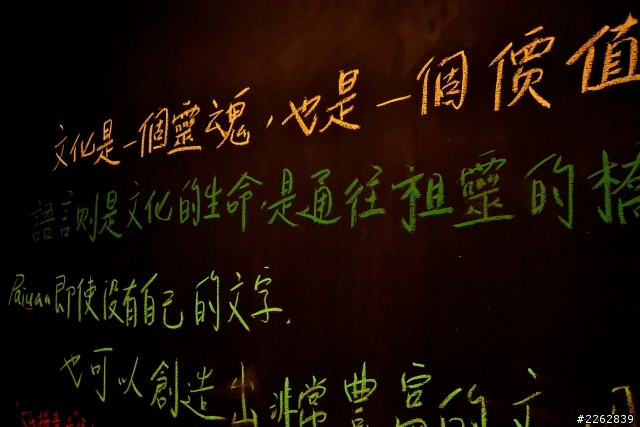 文化是一個靈魂，也是一個價值
語言則是文化的生命，是通往祖靈的橋
Paiwan即使沒有自己的文字，
也可以創造出非常豐富的文
#2262839